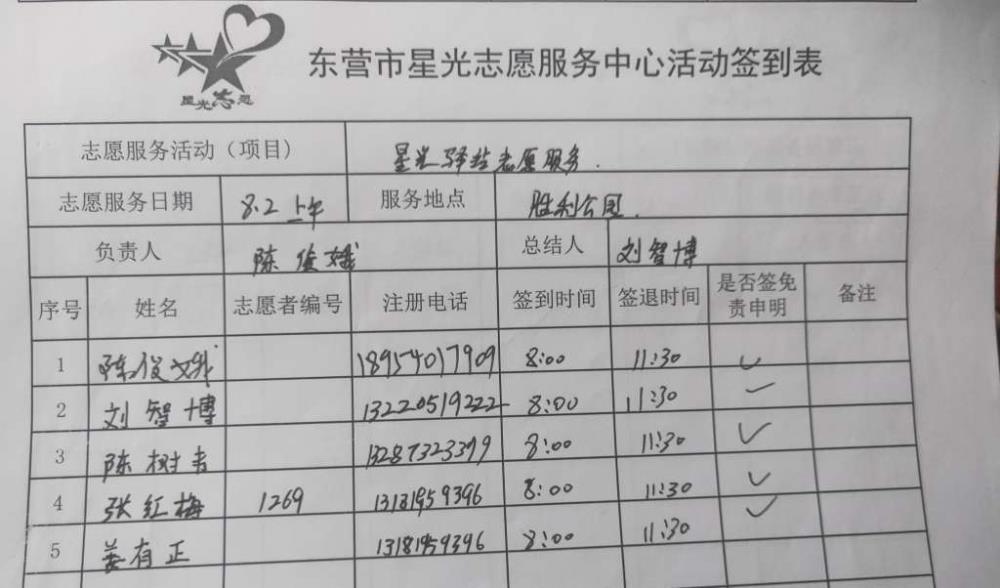 星光志愿
东营市星光志愿服务中心活动签到表
志愿服务活动（项目） 星光驿站志愿服务.
志愿服务日期 8.2 上午 服务地点 胜利公园.
负责人 陈俊娥 总结人 刘智博
序号 姓名 志愿者编号 注册电话 签到时间 签退时间 是否签免责申明 备注
1 陈俊娥 18954017909 8:00 11:30 ✓
2 刘智博 13220519222 8:00 11:30 ✓
3 陈树吉 13287323399 8:00 11:30 ✓
4 张红梅 1269 13181959396 8:00 11:30 ✓
5 姜有正 13181959396 8:00 11:30 ✓